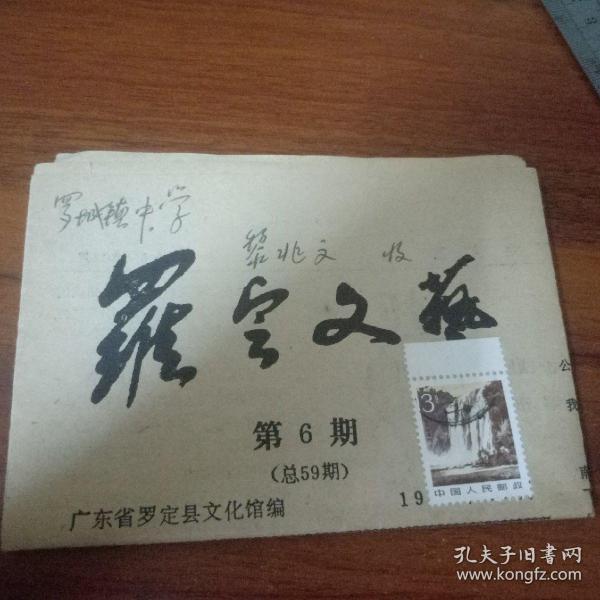 罗城镇中学
黎兆文 收
羅定文藝
第6期
(总59期)
广东省罗定县文化馆编
19
公
我
南
3
中国人民邮政
孔夫子旧书网
www.kongfz.com